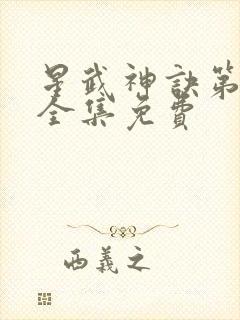 星武神诀第
全集免费
西義之